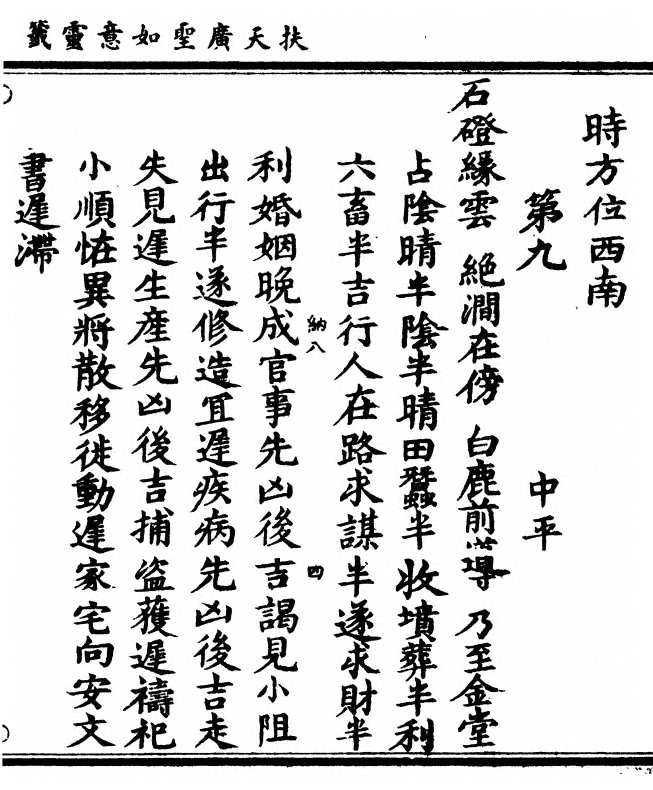 扶天廣聖如意靈籤
時方位西南
第九　中平
石磴緣雲　絶澗在傍　白鹿前導　乃至金堂
占陰晴半陰半晴田蠶半收墳葬半利
六畜半吉行人在路求謀半遂求財半
利婚姻晚成官事先凶後吉謁見小阻
納八　四
出行半遂修造宜遲疾病先凶後吉走
失見遲生產先凶後吉捕盜獲遲禱祀
小順恠異將散移徙動遲家宅向安文
書遲滯